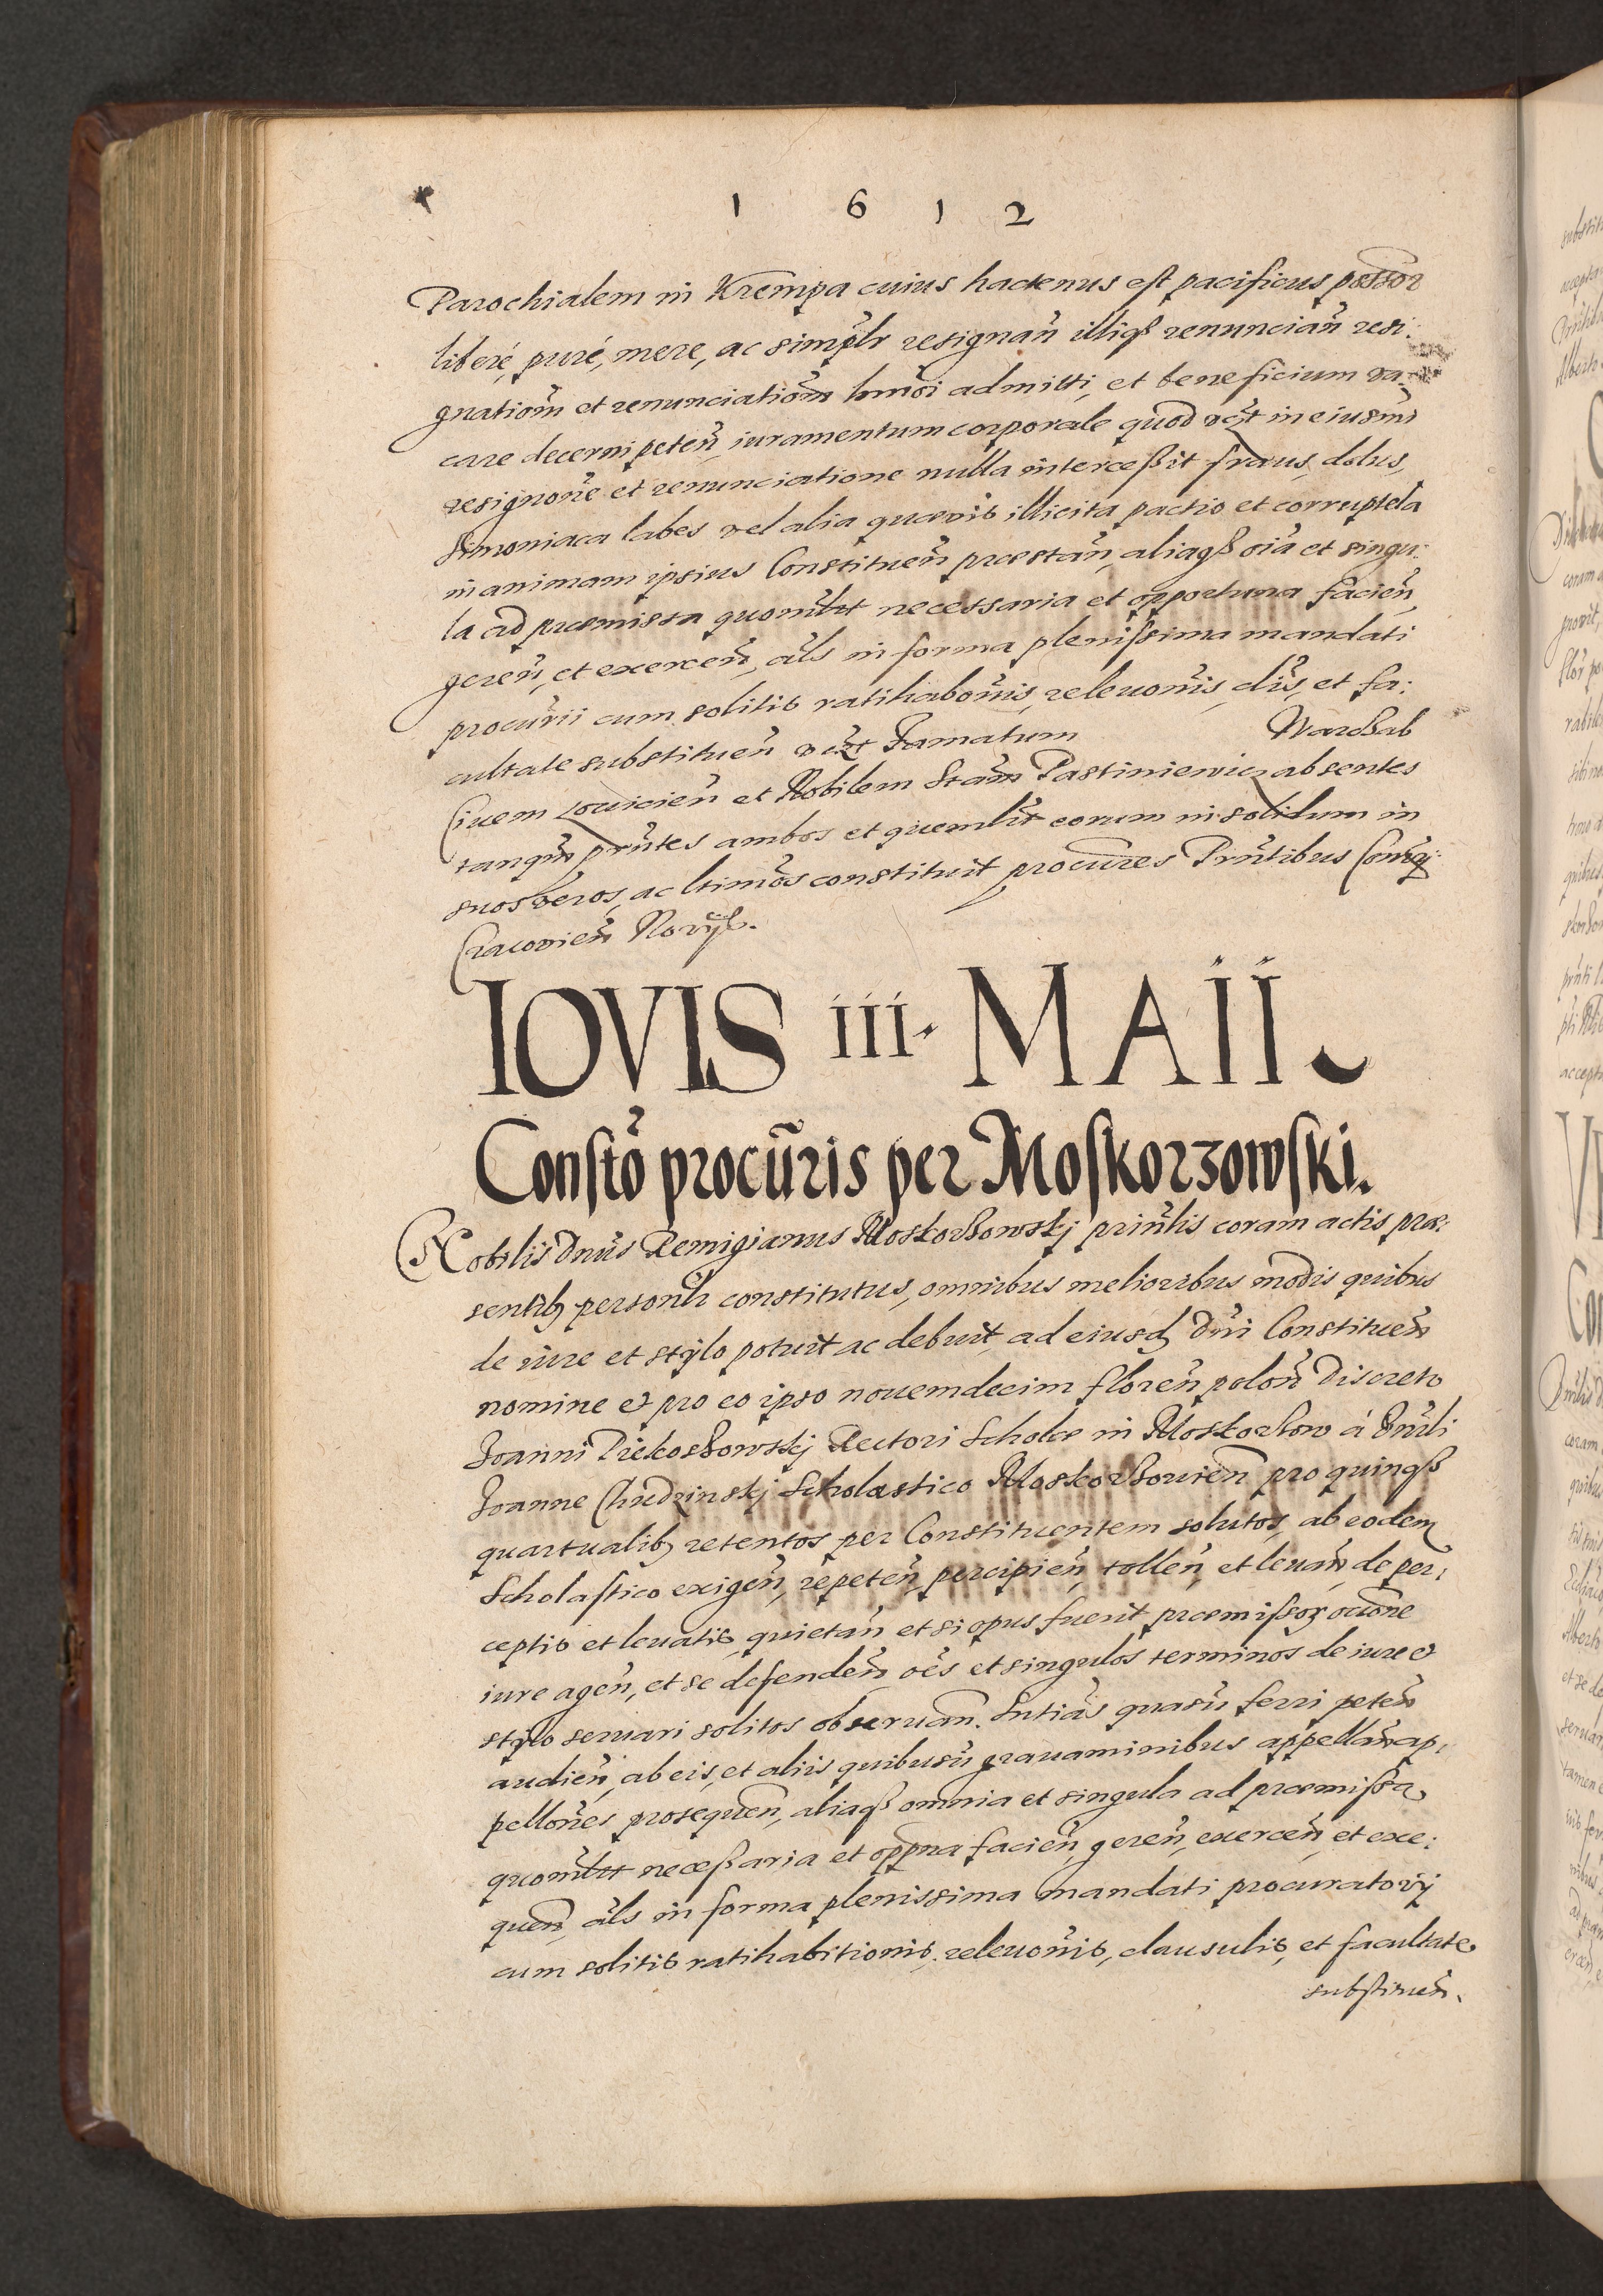 1 6 1 2
Parochialem in Krempa cuius hactenus est pacificus possor
liberé, puré, mere, ac simplr resignan̄ illiqß renuncian̄ resi:
gnation̄ et renunciation̄ hmōi admitti, et beneficium va:
care decerni peten̄, iuramentum corporale quod vizt in eiusmōi
resignone et renunciatione nulla interceßit fraus, dolus,
simoniaca labes vel alia quævis illicita pactio et corruptela
in animam ipsius Constituen̄ præstan̄, aliaqß oīa et singu:
la ad præmissa quomlbt necessaria et opportuna facien̄,
geren̄, et exercen̄, als in forma plenissima mandati
procurii cum solitis ratihabōnis, releuōnis, clis, et fa:
cultate substituen̄ vizt Famatum Warßab
Ciuem Louicien̄ et Nobilem Stan̄ Pastiniewicz absentes
tanqm̄ pn̄tes ambos et quemlbt eorum in solidum in
suos veros, ac ltimos constituit procures Pn̄tibus
Cracovien̄ Norÿß.
IOVIS iii. MAII
Constō procūris per Moskorzowski.
Nobilis Dnus Remigianus Moskorßowskj prin̄lis coram actis præ:
sentibz personlr constitutus, omnibus melioribus modis quibus
de iure et stÿlo potuit ac debuit, ad eiusdz Dn̄i Constituen̄
nomine et pro eo ipso nouemdecim floren̄ polon̄ Discreto
Joanni Piekoßowskj Rectori Scholæ in Moskorßow á Hn̄li
Joanne Chudzinskj Scholastico Moskorßouien̄ pro quinqß
quartualibz retentos per Constituentem solutos, ab eodem
Scholastico exigen̄, repeten̄, percipien̄, tollen̄, et leuan̄, de per:
ceptis et leuatis, quietan̄ et si opus fuerit præmissor ocōne
iure agen̄, et se defenden̄, oēs et singulos terminos de iure et
stÿlo seruari solitos obseruan̄. Sntias quasū ferri peten̄
audien̄, ab eis, et aliis quibusū grauaminibus appellan̄ ap:
pellones prosequen̄, aliaqß omnia et singula ad præmißa
quomlbt neceßaria et oppna facien̄, geren̄, exercen̄, et exe:
quen̄, als in forma plenissima mandati procuratorÿ
cum solitis ratihabitionis, releuōnis, clausulis, et facultate
substituen̄.